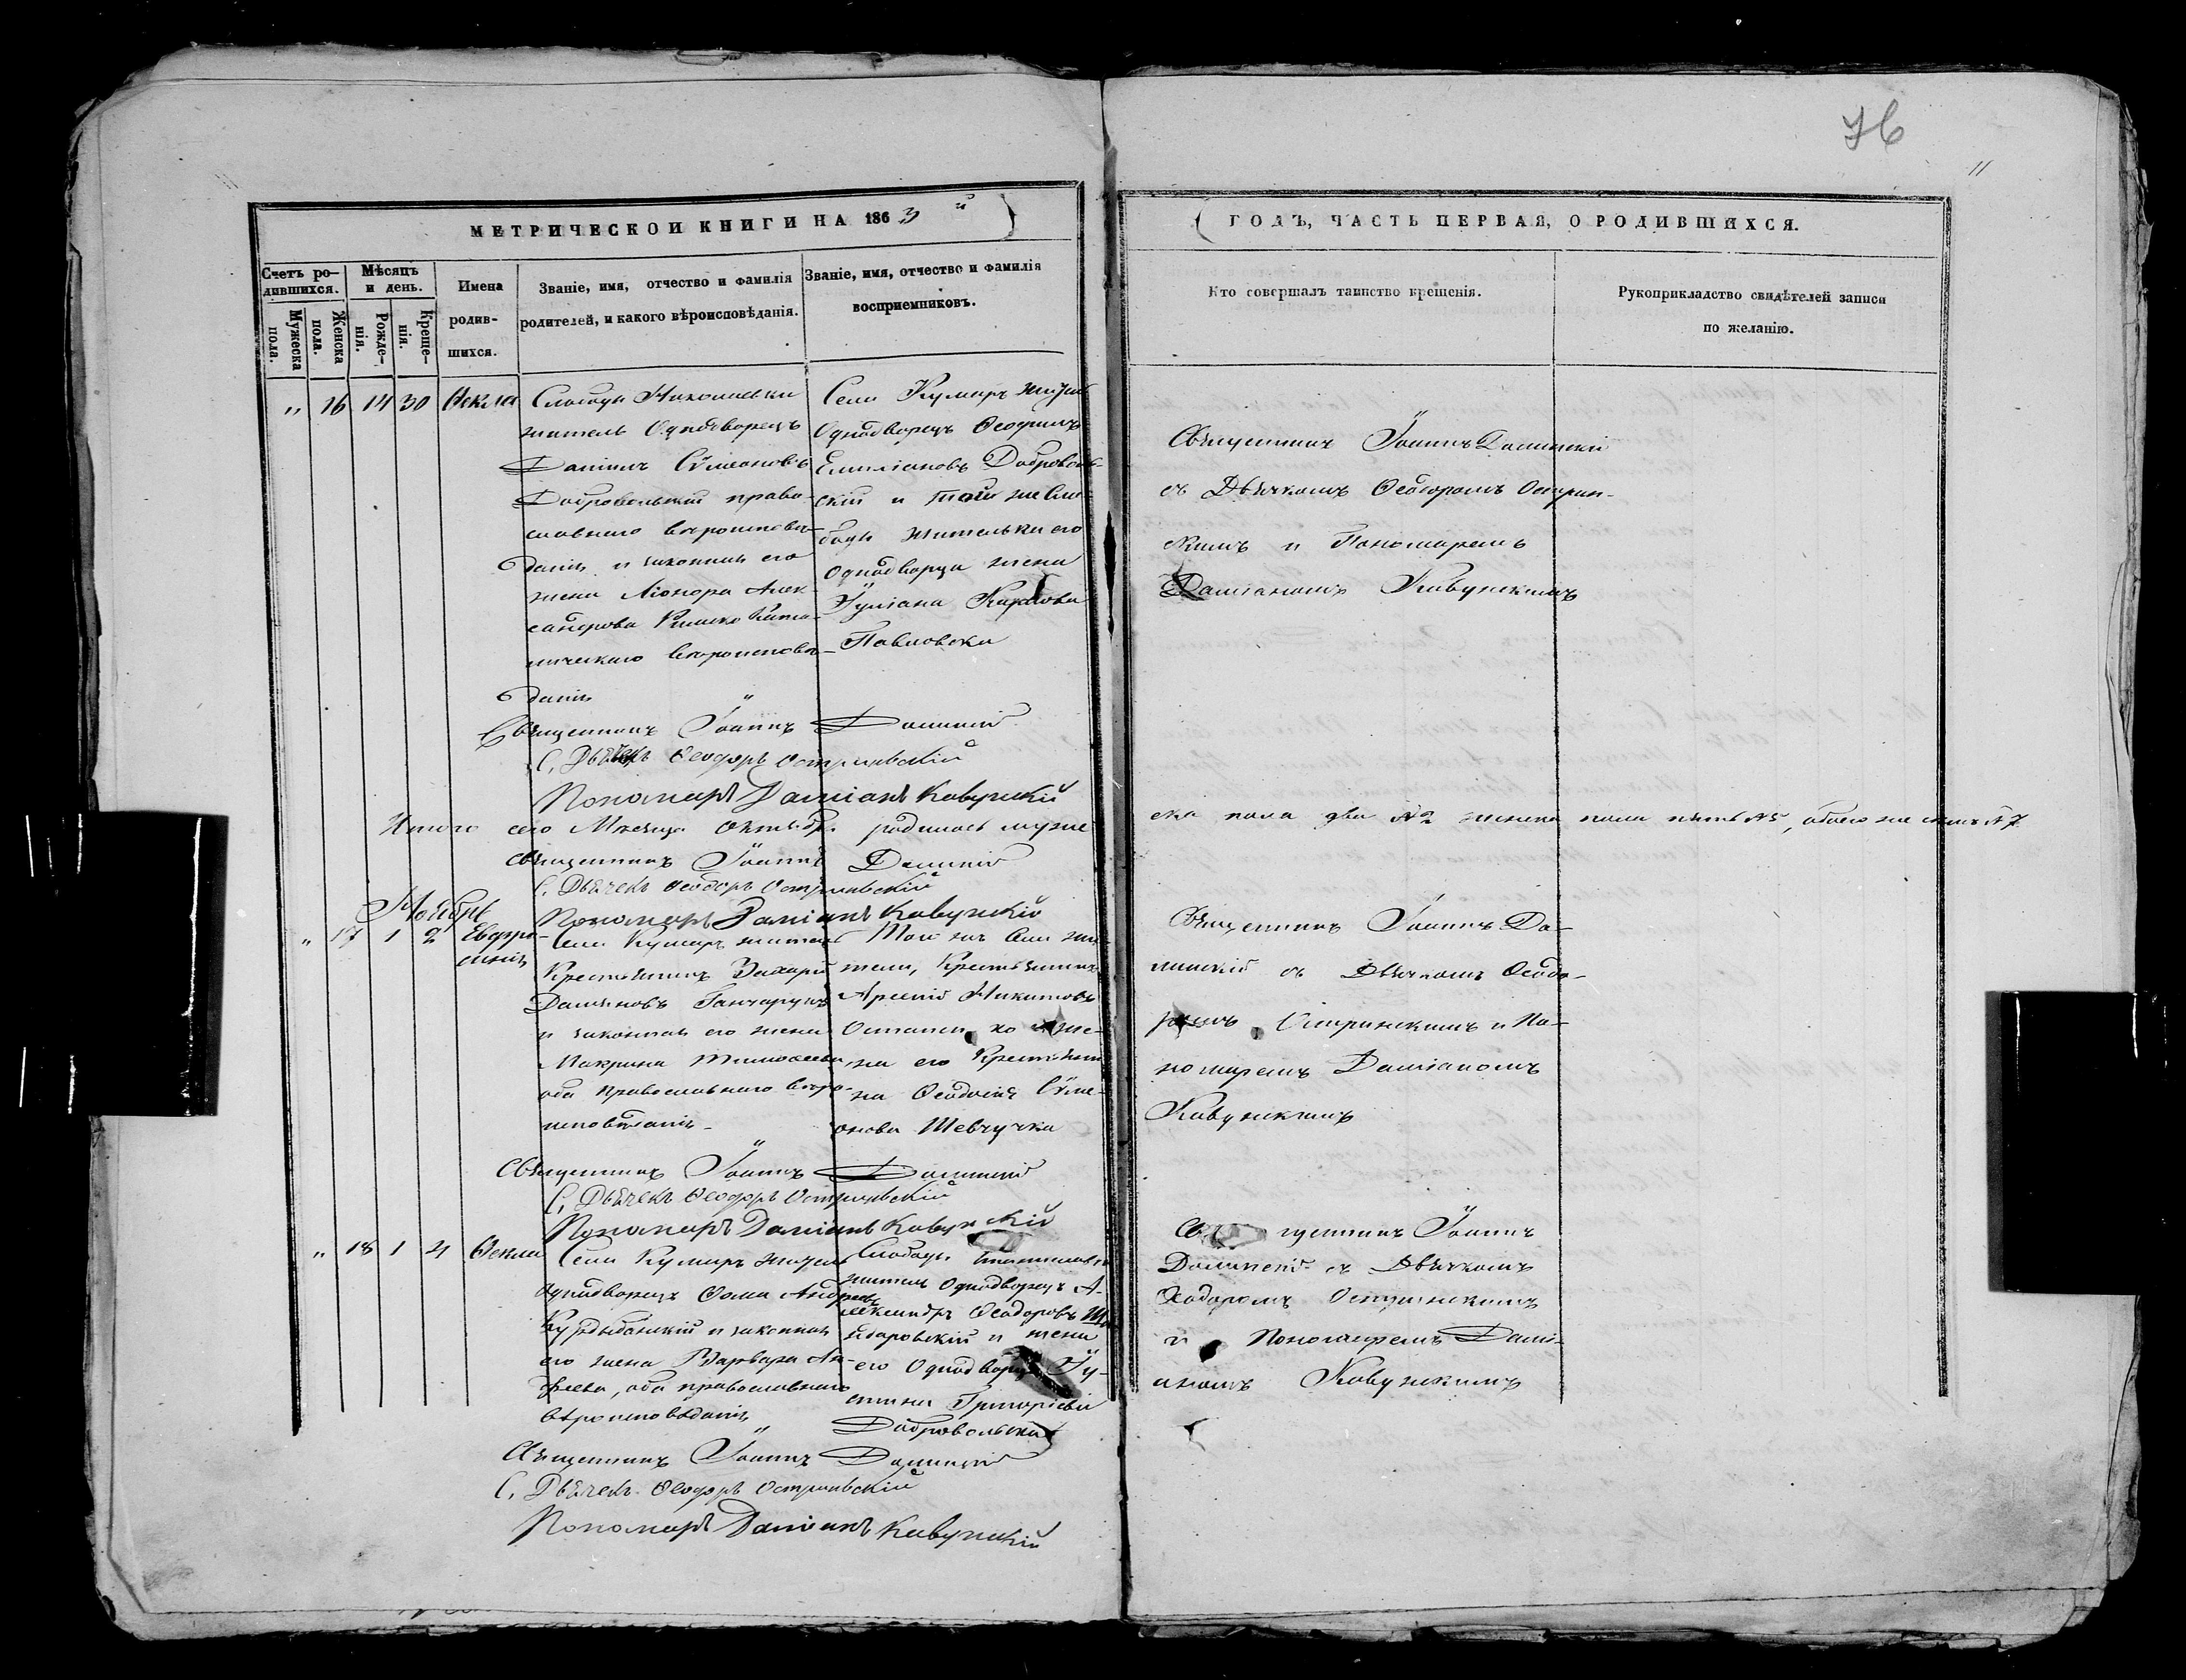 76
11
МЕТРИЧЕСКОЙ КНИГИ НА 1863 й
ГОДЪ, ЧАСТЬ ПЕРВАЯ, О РОДИВШИХСЯ.
Счетъ ро-
дившихся.
Мужеска пола.
Женска пола.
Мѣсяцъ
и день.
Рожде-
нія.
Креще-
нія.
Имена
родив-
шихся.
Званіе, имя, отчество и фамилія
родителей, и какого вѣроисповѣданія.
Званіе, имя, отчество и фамилія
восприемниковъ.
Кто совершалъ таинство крещенія.
Рукоприкладство свидѣтелей записи
по желанію.
" 16 14 30 Ѳекла
Слободы
житель Однодворецъ
Даніилъ Сѵмеоновъ
Добровольскій право-
славнаго вѣроисповѣ-
данія и законная его
жена Алек-
сандрова Римско Като-
лическаго вѣроисповѣ-
данія
Села Кумаръ житель
Однодворецъ
Емиліановъ Доброволь-
скій и той же Сло-
боды жительки его
Однодворца жена
Іуліана
Павловска
Священникъ Іоаннъ
съ Дьячкомъ Ѳеодоромъ Острин-
скимъ и Пономаремъ
Даміаномъ Кавунскимъ
Священникъ Іоаннъ
С. Дьячекъ Ѳеодоръ
Пономарь Даміанъ Кавунскій
Итого сего Мѣсяца Октября родилось муже
ска пола два №2 женска пола пять №5, обоего же семь №7
Священникъ Іоаннъ
С. Дьячекъ Ѳеодоръ
Пономарь Даміанъ Кавунскій
Ноябрь
" 17 1 2 Евфро-
синія
Села Кумаръ житель
Крестьянинъ Захарій
Даміановъ Ганчарукъ
и законная его жена
Макрина Тимоѳеева
оба Православнаго вѣро-
исповѣданія
Того же Села жи-
тели, Крестьянинъ
Арсеній Никитовъ
и же-
на его Крестьян
на Ѳеодосія Сѵме-
онова Шевчучка
Священникъ Іоаннъ До-
съ Дьячкомъ Ѳеодо-
ромъ Остринскимъ и По-
номаремъ Даміаномъ
Кавунскимъ
Священникъ Іоаннъ
С. Дьячекъ Ѳеодоръ
Пономарь Даміанъ Кавунскій
" 18 1 4 Ѳекла
Села Кумаръ житель
Однодворецъ Ѳома Андреевъ
и законная
его жена Варвара Ан-
дреева, оба православнаго
вѣроисповѣданія
Слободы
житель Однодворецъ А-
лександръ Ѳеодоровъ
и жена
его Однодворца Іу-
стина Григоріева
Добровольска
Священникъ Іоаннъ
съ Дьячкомъ
Ѳеодоромъ Остринскимъ
и Пономаремъ Дамі-
аномъ Кавунскимъ
Священникъ Іоаннъ
С. Дьячекъ Ѳеодоръ
Пономарь Даміанъ Кавунскій